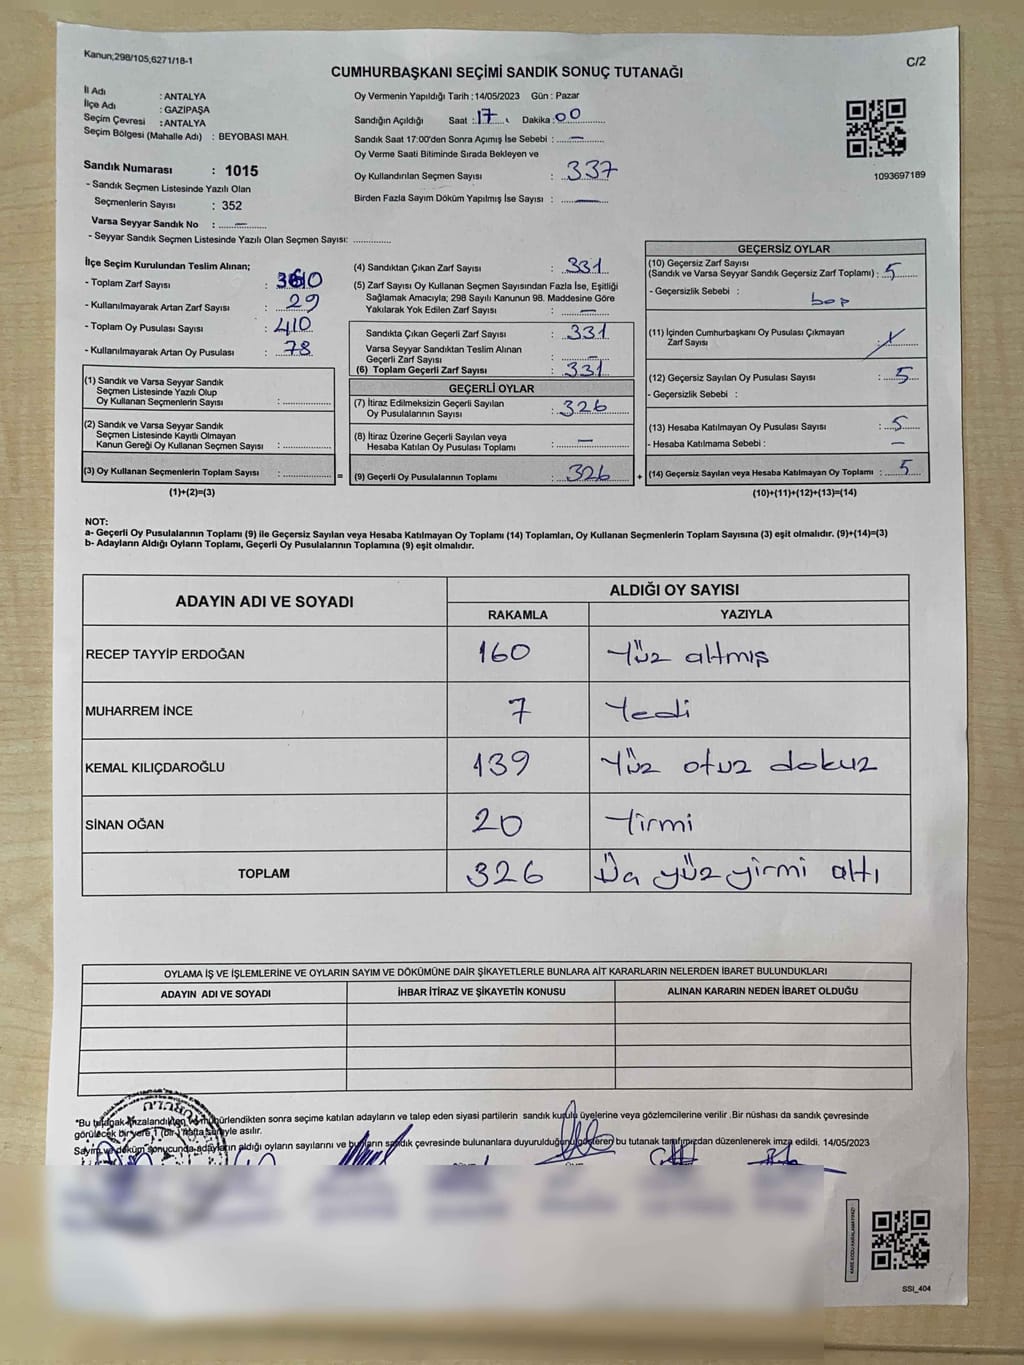 Kanun;298/105,6271/18-1
C/2
CUMHURBAŞKANI SEÇİMİ SANDIK SONUÇ TUTANAĞI
İl Adı : ANTALYA
İlçe Adı : GAZİPAŞA
Seçim Çevresi : ANTALYA
Seçim Bölgesi (Mahalle Adı) : BEYOBASI MAH.
Sandık Numarası : 1015
- Sandık Seçmen Listesinde Yazılı Olan
Seçmenlerin Sayısı : 352
Varsa Seyyar Sandık No : —
- Seyyar Sandık Seçmen Listesinde Yazılı Olan Seçmen Sayısı: ..............
Oy Vermenin Yapıldığı Tarih : 14/05/2023 Gün : Pazar
Sandığın Açıldığı Saat : 17 Dakika : 00
Sandık Saat 17:00'den Sonra Açımış İse Sebebi : —
Oy Verme Saati Bitiminde Sırada Bekleyen ve
Oy Kullandırılan Seçmen Sayısı : 337
Birden Fazla Sayım Döküm Yapılmış İse Sayısı : —
1093697189
İlçe Seçim Kurulundan Teslim Alınan;
- Toplam Zarf Sayısı :
- Kullanılmayarak Artan Zarf Sayısı : 29
- Toplam Oy Pusulası Sayısı : 410
- Kullanılmayarak Artan Oy Pusulası : 78
(1) Sandık ve Varsa Seyyar Sandık
Seçmen Listesinde Yazılı Olup
Oy Kullanan Seçmenlerin Sayısı : ..............
(2) Sandık ve Varsa Seyyar Sandık
Seçmen Listesinde Kayıtlı Olmayan
Kanun Gereği Oy Kullanan Seçmen Sayısı : ..............
(3) Oy Kullanan Seçmenlerin Toplam Sayısı : .............. =
(1)+(2)=(3)
(4) Sandıktan Çıkan Zarf Sayısı : 331
(5) Zarf Sayısı Oy Kullanan Seçmen Sayısından Fazla İse, Eşitliği
Sağlamak Amacıyla; 298 Sayılı Kanunun 98. Maddesine Göre
Yakılarak Yok Edilen Zarf Sayısı : —
Sandıkta Çıkan Geçerli Zarf Sayısı : 331
Varsa Seyyar Sandıktan Teslim Alınan
Geçerli Zarf Sayısı : —
(6) Toplam Geçerli Zarf Sayısı : 331
GEÇERLİ OYLAR
(7) İtiraz Edilmeksizin Geçerli Sayılan
Oy Pusulalarının Sayısı : 326
(8) İtiraz Üzerine Geçerli Sayılan veya
Hesaba Katılan Oy Pusulası Toplamı : —
(9) Geçerli Oy Pusulalarının Toplamı : 326 +
GEÇERSİZ OYLAR
(10) Geçersiz Zarf Sayısı
(Sandık ve Varsa Seyyar Sandık Geçersiz Zarf Toplamı) : 5
- Geçersizlik Sebebi : boş
(11) İçinden Cumhurbaşkanı Oy Pusulası Çıkmayan
Zarf Sayısı
(12) Geçersiz Sayılan Oy Pusulası Sayısı : 5
- Geçersizlik Sebebi :
(13) Hesaba Katılmayan Oy Pusulası Sayısı : 5
- Hesaba Katılmama Sebebi : —
(14) Geçersiz Sayılan veya Hesaba Katılmayan Oy Toplamı : 5
(10)+(11)+(12)+(13)=(14)
NOT:
a- Geçerli Oy Pusulalarının Toplamı (9) ile Geçersiz Sayılan veya Hesaba Katılmayan Oy Toplamı (14) Toplamları, Oy Kullanan Seçmenlerin Toplam Sayısına (3) eşit olmalıdır. (9)+(14)=(3)
b- Adayların Aldığı Oyların Toplamı, Geçerli Oy Pusulalarının Toplamına (9) eşit olmalıdır.
ADAYIN ADI VE SOYADI
ALDIĞI OY SAYISI
RAKAMLA YAZIYLA
RECEP TAYYİP ERDOĞAN 160 Yüz altmış
MUHARREM İNCE 7 Yedi
KEMAL KILIÇDAROĞLU 139 Yüz otuz dokuz
SİNAN OĞAN 20 Yirmi
TOPLAM 326 Üç yüz yirmi altı
OYLAMA İŞ VE İŞLEMLERİNE VE OYLARIN SAYIM VE DÖKÜMÜNE DAİR ŞİKAYETLERLE BUNLARA AİT KARARLARIN NELERDEN İBARET BULUNDUKLARI
ADAYIN ADI VE SOYADI İHBAR İTİRAZ VE ŞİKAYETİN KONUSU ALINAN KARARIN NEDEN İBARET OLDUĞU
*Bu tutanak imzalandıktan ve mühürlendikten sonra seçime katılan adayların ve talep eden siyasi partilerin sandık kurulu üyelerine veya gözlemcilerine verilir .Bir nüshası da sandık çevresinde
görülecek bir yere 1 (bir) hafta süreyle asılır.
Sayım ve döküm sonucunda adayların aldığı oyların sayılarını ve bunların sandık çevresinde bulunanlara duyurulduğunu gösteren bu tutanak tarafımızdan düzenlenerek imza edildi. 14/05/2023
SSI_404